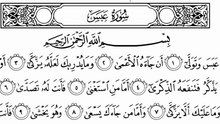 سُورَةُ عَبَسَ
بِسْمِ اللَّهِ الرَّحْمَٰنِ الرَّحِيمِ
عَبَسَ وَتَوَلَّىٰ ١ أَن جَاءَهُ الْأَعْمَىٰ ٢ وَمَا يُدْرِيكَ لَعَلَّهُ يَزَّكَّىٰ ٣ أَوْ
يَذَّكَّرُ فَتَنفَعَهُ الذِّكْرَىٰ ٤ أَمَّا مَنِ اسْتَغْنَىٰ ٥ فَأَنتَ لَهُ تَصَدَّىٰ ٦
وَمَا عَلَيْكَ أَلَّا يَزَّكَّىٰ ٧ وَأَمَّا مَن جَاءَكَ يَسْعَىٰ ٨ وَهُوَ يَخْشَىٰ ٩